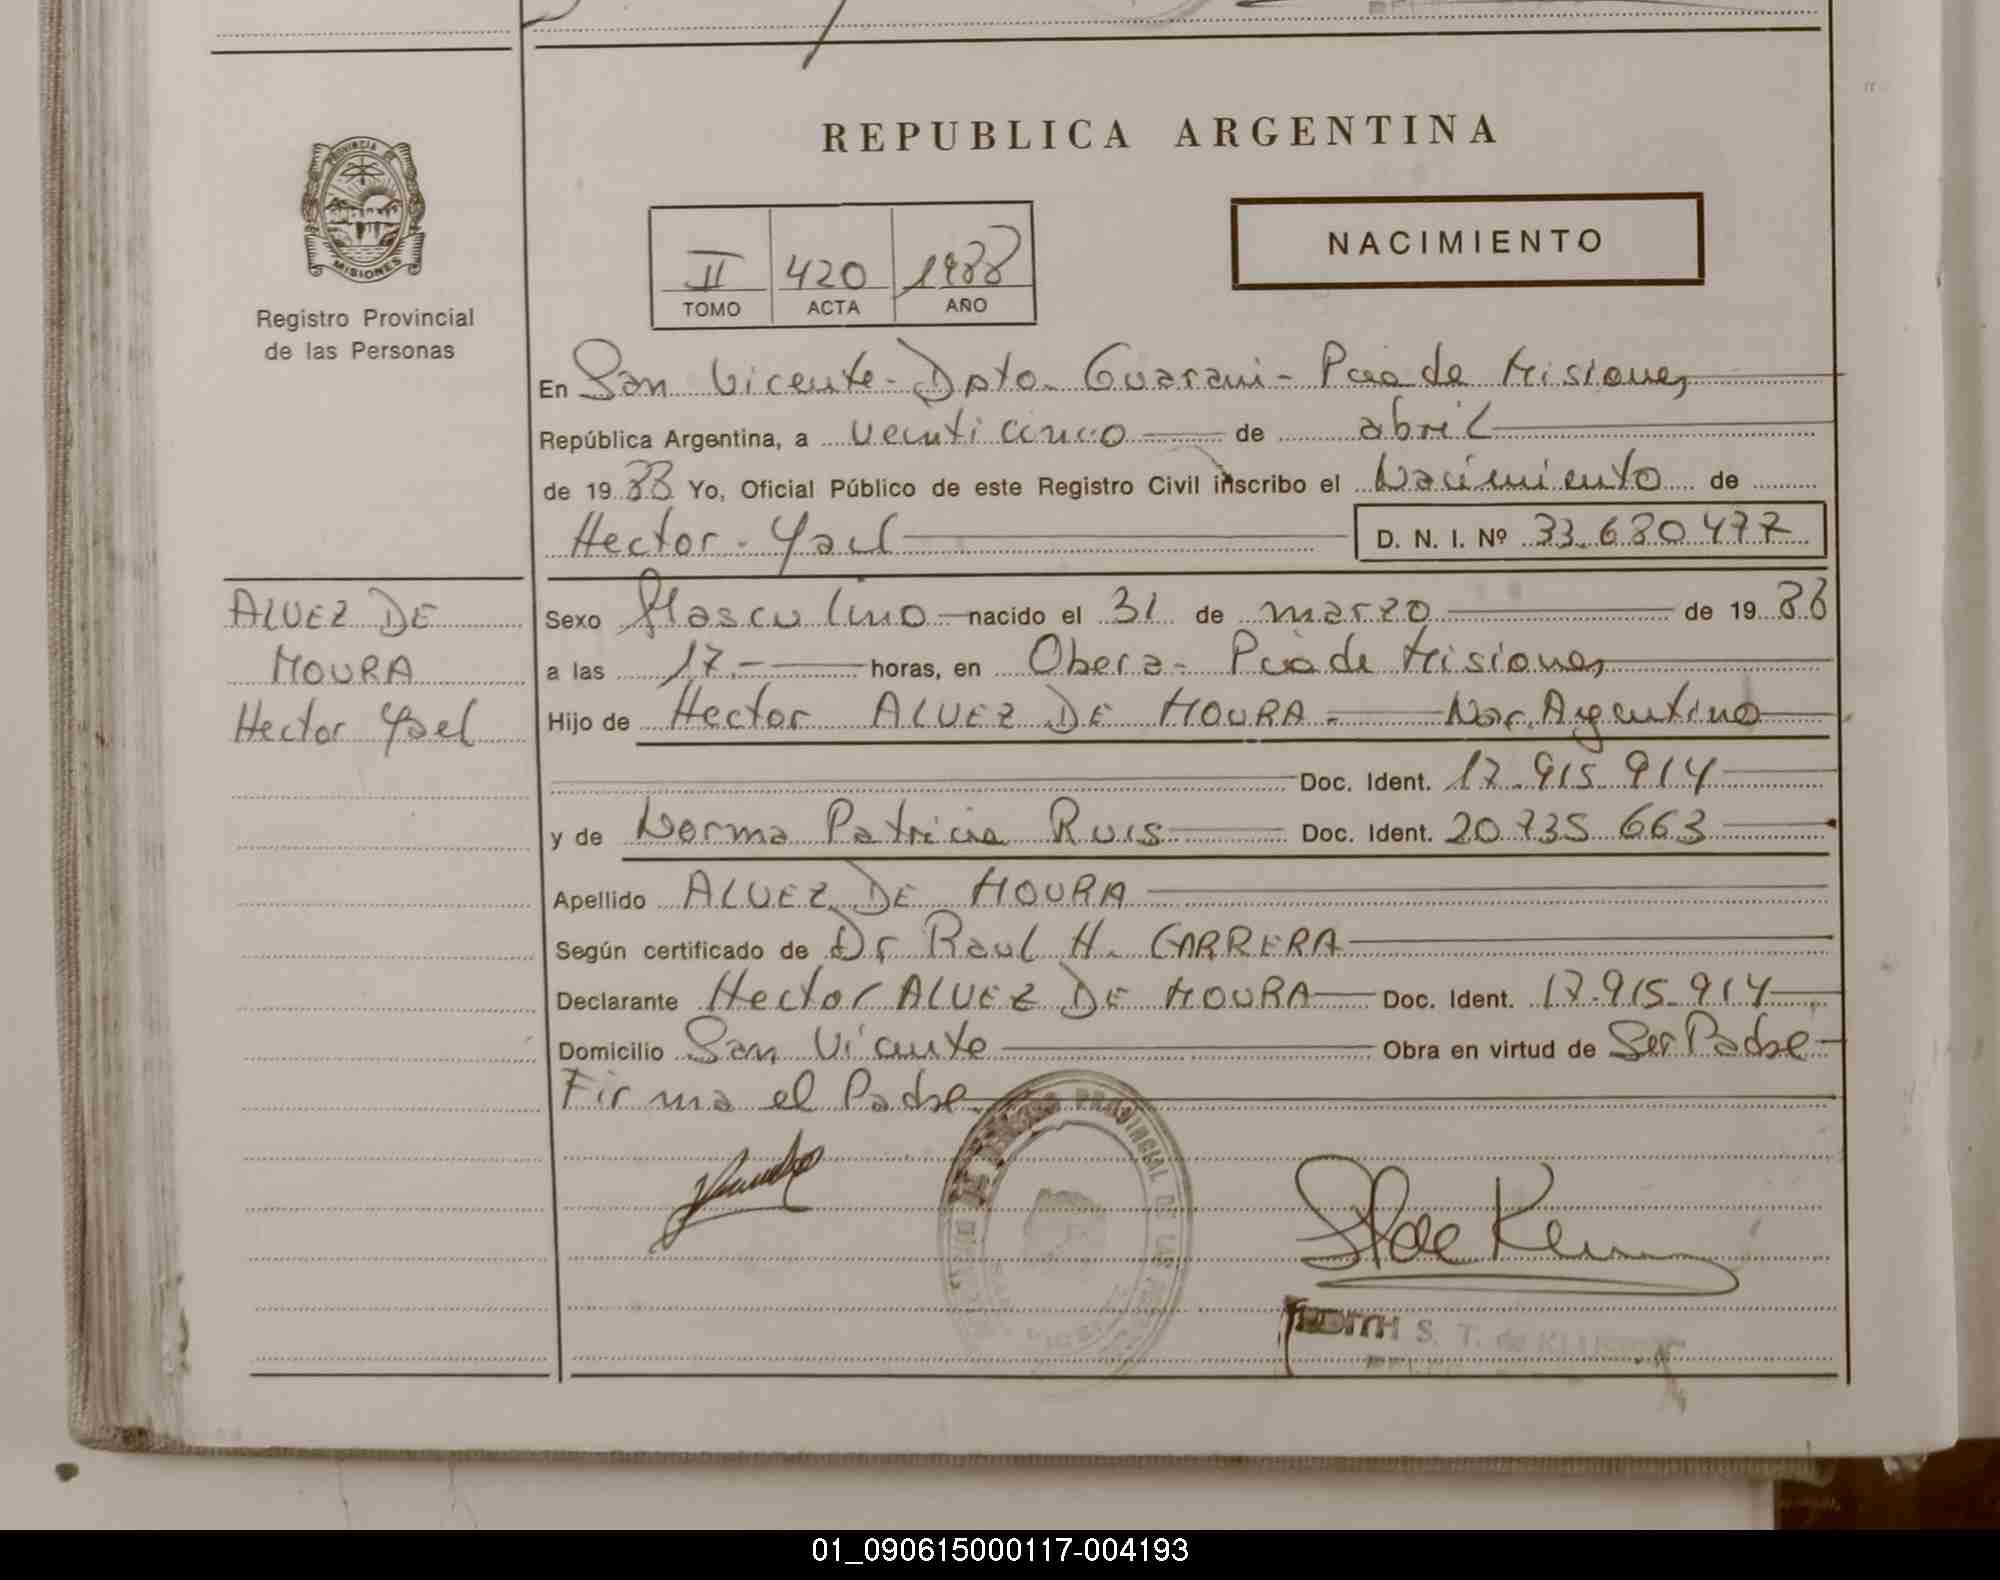 REPUBLICA ARGENTINA
PROVINCIA DE
MISIONES
Registro Provincial
de las Personas
NACIMIENTO
II 420 1988
TOMO ACTA AÑO
En San Vicente - Dpto. Guarani - Pcia de Misiones
República Argentina, a veinticinco de abril
de 1988 Yo, Oficial Público de este Registro Civil inscribo el Nacimiento de
Hector - Yael D. N. I. Nº 33.680.477
ALVEZ DE
MOURA
Hector Yael
Sexo Masculino nacido el 31 de marzo de 1988
a las 17.- horas, en Obera - Pcia de Misiones
Hijo de Hector ALVEZ DE MOURA - Nac. Argentino
Doc. Ident. 17.915.914
y de Norma Patricia Ruis Doc. Ident. 20.735.663
Apellido ALVEZ DE MOURA
Según certificado de Dr Raul H. CARRERA
Declarante Hector ALVEZ DE MOURA Doc. Ident. 17.915.914
Domicilio San Vicente Obra en virtud de Ser Padre -
Firma el Padre.
PROVINCIAL DE LAS
S. T. de
01_090615000117-004193